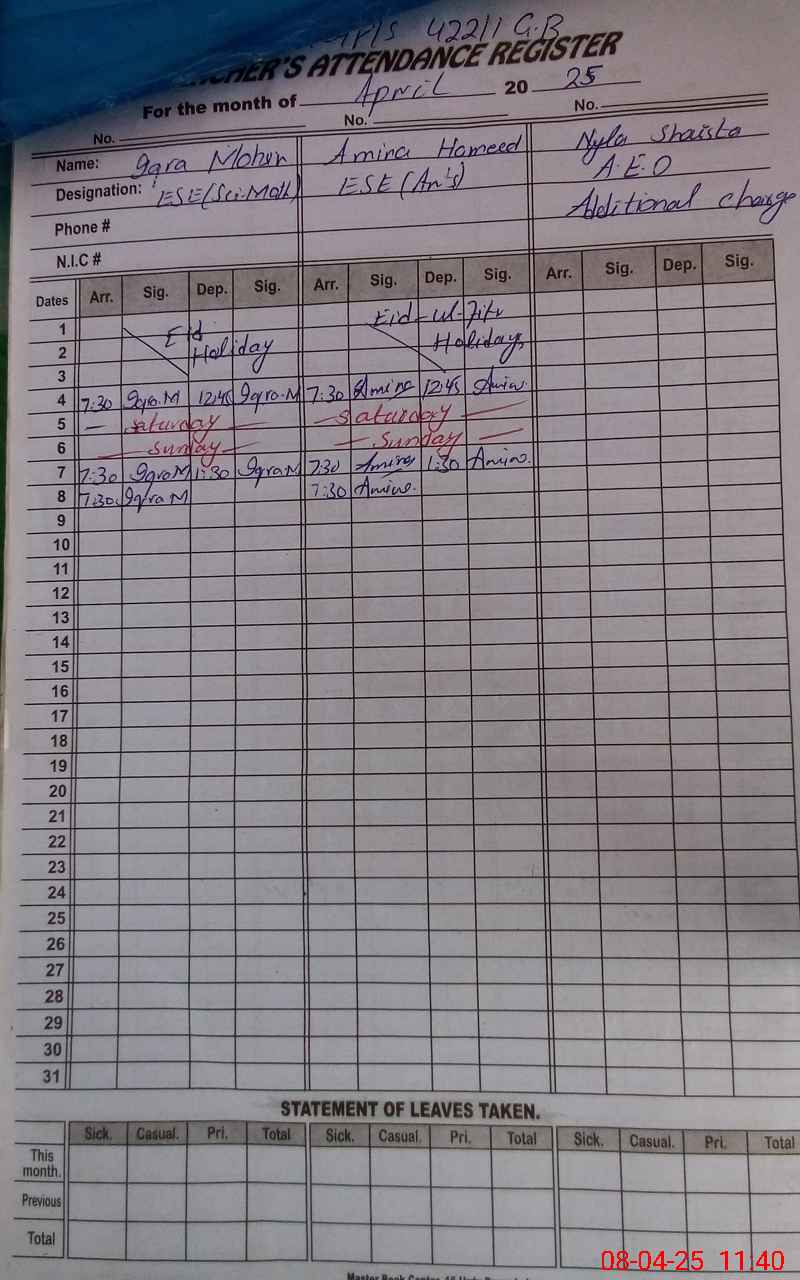 Girls 422/1 G.B
TEACHER'S ATTENDANCE REGISTER
For the month of April 20 25
No. No. No.
Name: Iqra Mohsin Amina Hameed Nyla Shaista
Designation: ESE(Sci-Math) ESE (Arts) A.E.O
Phone # Additional charge
N.I.C #
Dates Arr. Sig. Dep. Sig. Arr. Sig. Dep. Sig. Arr. Sig. Dep. Sig.
1 Eid Eid-ul-Fitr
2 Holiday Holidays
3
4 7:30 Iqra.M 12:45 Iqra.M 7:30 Amina 12:45 Amina
5 — Saturday — — Saturday —
6 — Sunday — — Sunday —
7 7:30 Iqra M 1:30 Iqra M 7:30 Amina 1:30 Amina.
8 7:30 Iqra M 7:30 Amina.
9
10
11
12
13
14
15
16
17
18
19
20
21
22
23
24
25
26
27
28
29
30
31
STATEMENT OF LEAVES TAKEN.
Sick. Casual. Pri. Total Sick. Casual. Pri. Total Sick. Casual. Pri. Total
This month.
Previous
Total
08-04-25 11:40